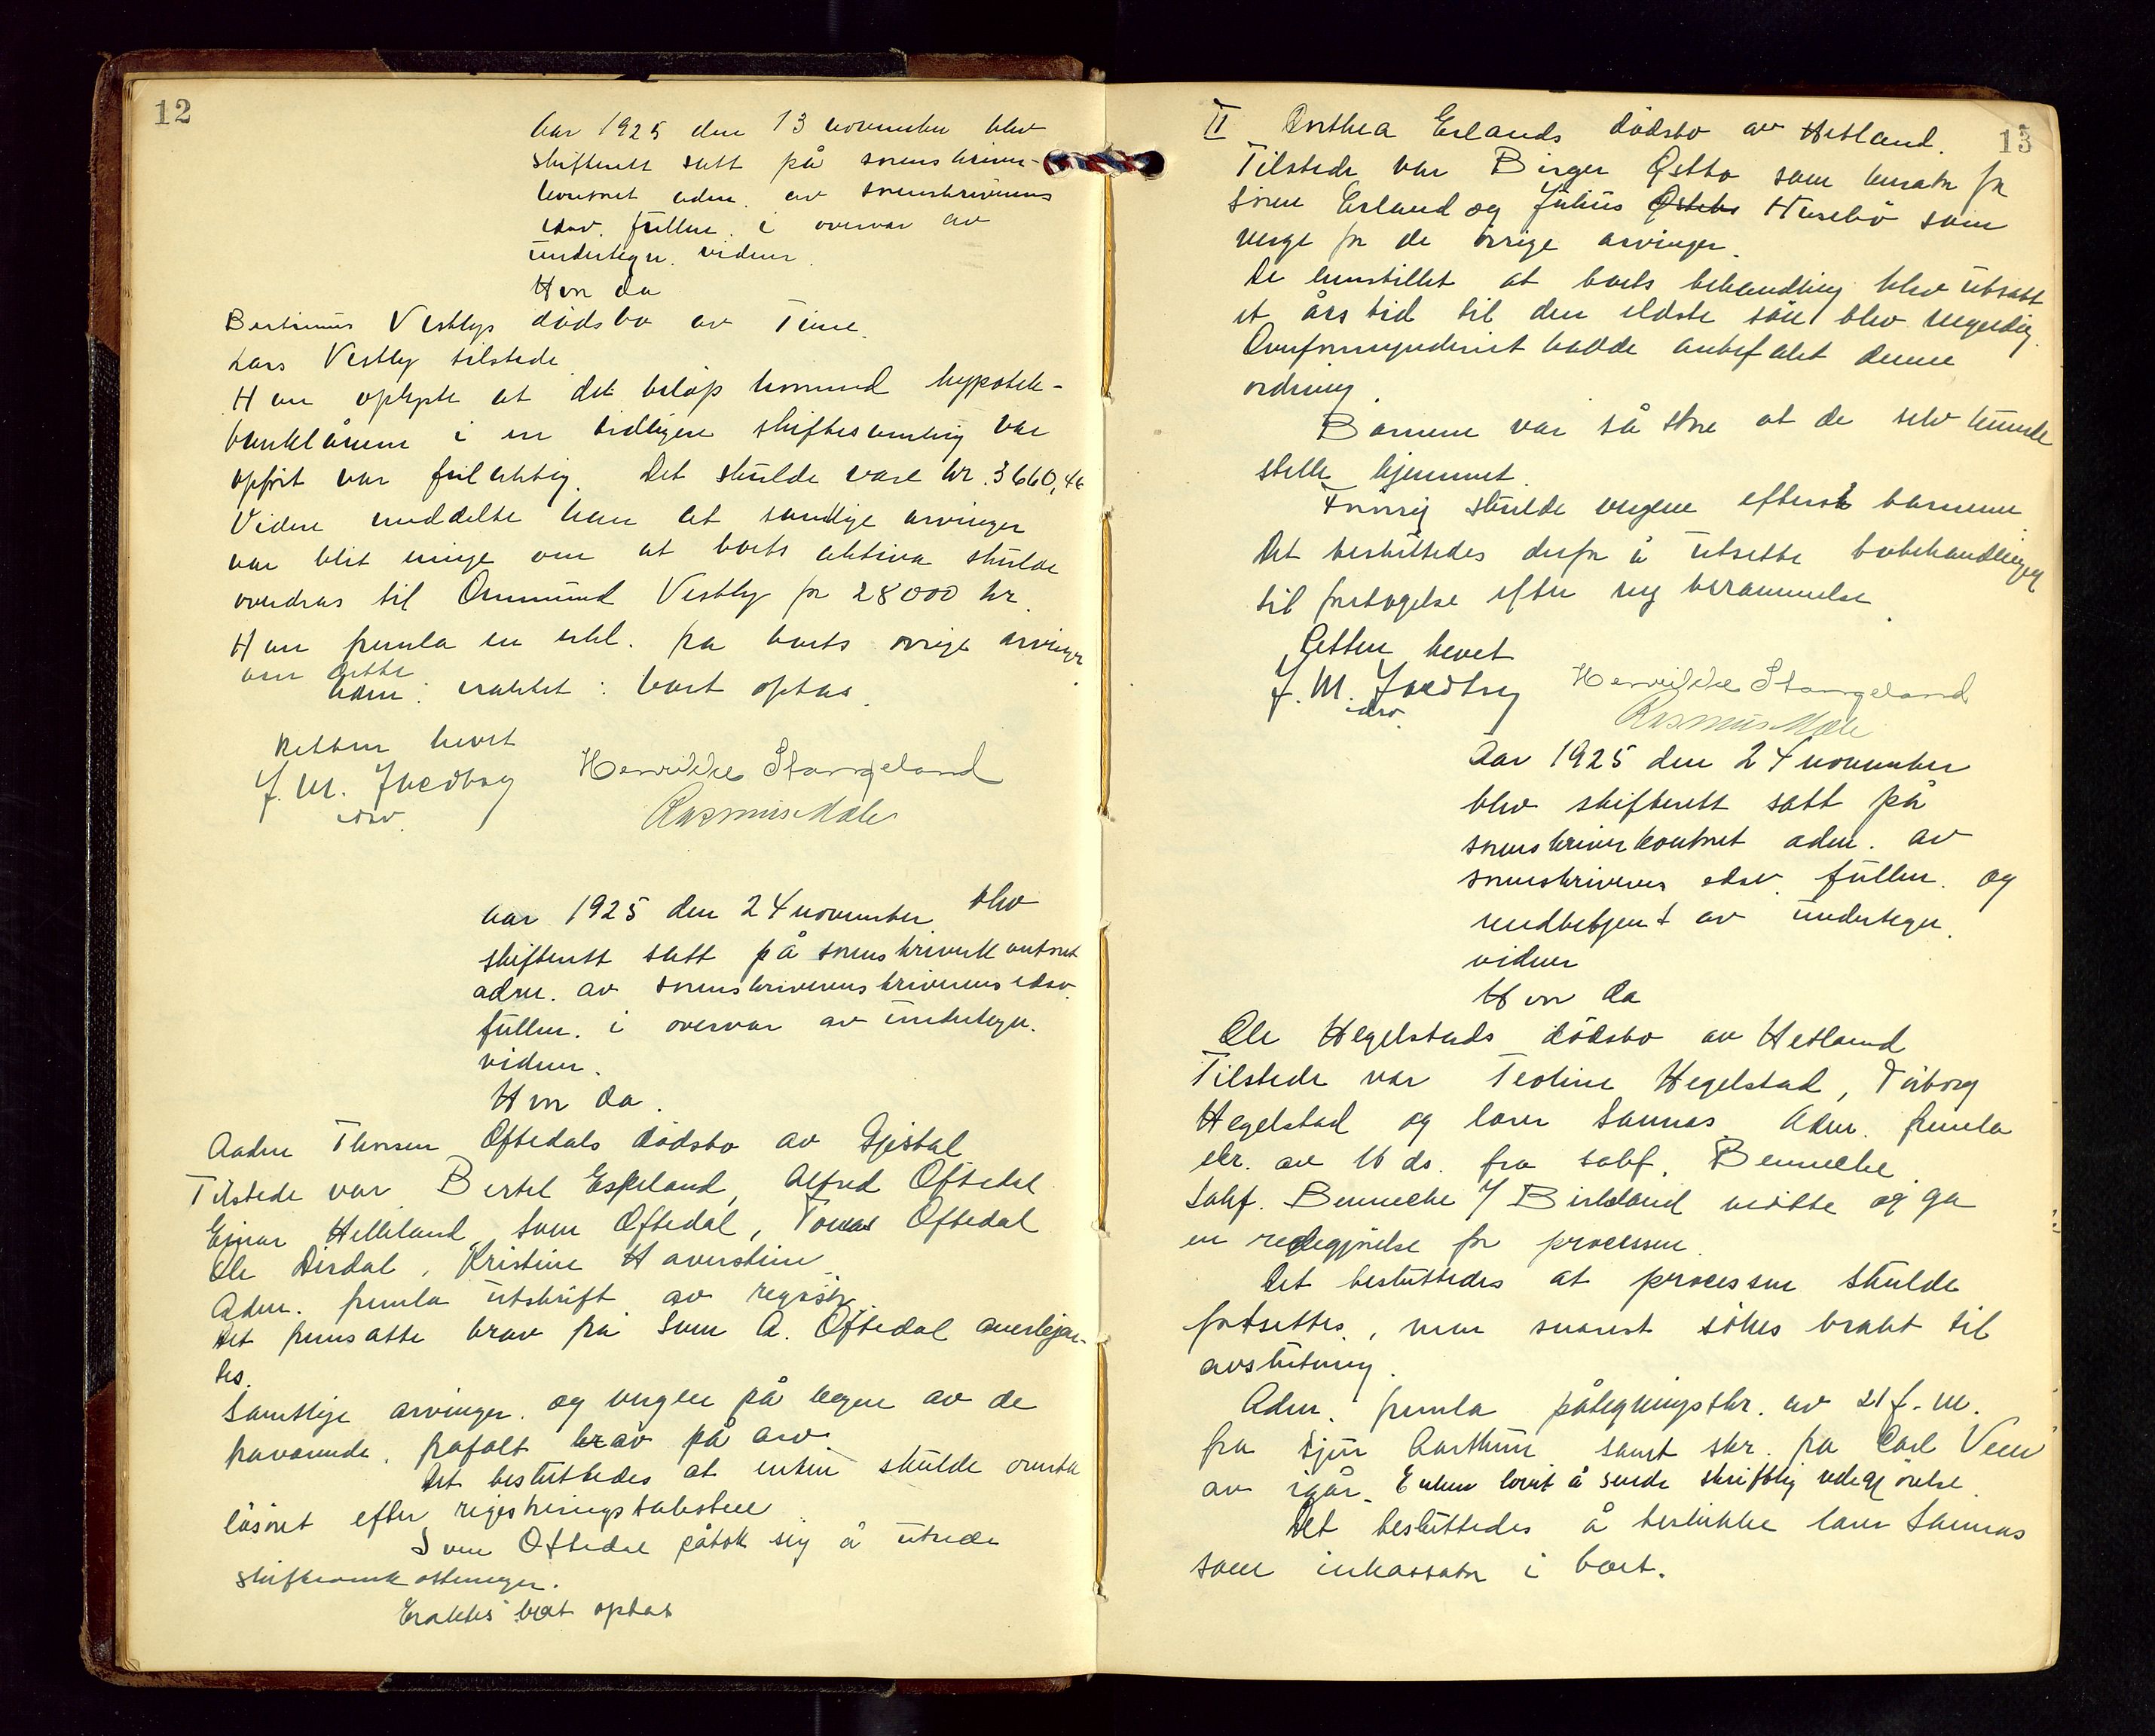 12
Aar 1925 den 13 november blev
skifterett satt på sorenskriver-
kontoret adm. av sorenskriverens
edsv. fullm. i overvær av
undertegn. vidner.
Hvor da
Bertinius Vestbys dödsbo av Time.
Lars Vestby tilstede
Han oplyste at det beløp hvormed hypotek-
banklånene i en tidligere skiftesamling var
opfört var feilaktig. Det skulde være kr. 3660,46
Videre meddelte han at samtlige arvinger
var blit enige om at boets aktiva skulde
overdras til Ommund Vestby for 28000 kr.
Han fremla en erkl. fra boets øvrige arvinger
om dette
Adm. eraktet: boet optas.
Retten hevet
J. M. Ivedtsg
edsv.
Henrikke Stangeland
Rasmus Mæle
Aar 1925 den 24 november blev
skifterett satt på sorenskriverkontoret
adm. av sorenskriverenskriverens edsv.
fullm. i overvær av undertegn.
vidner.
Hvor da.
Aadne Thorsen Oftedals dödsbo av Gjestal
Tilstede var Bertel Espeland, Alfred Oftedal
Einar Helleland, Sven Oftedal, Tomas Oftedal
Ole Dirdal, Kristine Haverstein
Adm. fremla utskrift av registr.
Det fremsatte krav fra Sven A. Oftedal anerkjen-
tes.
Samtlige arvinger og vergen på vegne av de
fraværende, frafalt krav på arv.
Det besluttedes at enken skulde overta
lösöret efter registreringstaksten
Sven Oftedal påtok sig å utrede
skifteomkostninger.
Eraktes boet optat
13
II Anthea Erlands dödsbo av Hetland.
Tilstede var Birger Østbo som kurator for
Sören Erland og Julius Østebø Husebö som
verge for de övrige arvinger.
De henstillet at boets behandling blev utsatt
et års tid til den eldste sön blev myndig.
Overformynderiet hadde anbefalet denne
ordning.
Barnene var så store at de selv kunde
stelle hjemmet.
Forövrig skulde vergene efterse barnene
Det besluttedes derfor å utsette bobehandlingen
til foretagelse efter ny berammelse.
Retten hevet
J. M. Ivedtsg
edsv.
Henrikke Stangeland
Rasmus Mæle
Aar 1925 den 24 november
blev skifterett satt på
sorenskriverkontoret adm. av
sorenskriverens edsv. fullm. og
medbetjent av undertegn.
vidner
Hvor da
Ole Hegelstads dödsbo av Hetland
Tilstede var Teoline Hegelstad, Torborg
Hegelstad og lærer Sannas. Adm. fremla
skr. av 16 ds. fra sakf. Bennecke
Sakf. Bennecke / Birkeland mötte og ga
en redegjörelse for processen.
Det besluttedes at processen skulde
fortsettes, men snarest sökes brakt til
avslutning.
Adm. fremla påtegningsskr. av 21 f.m.
fra Sjur Aarthun samt skr. fra Carl Veen
av igår. Enken lovet å sende skriftlig redegjörelse.
Det besluttedes å beskikke lærer Sannas
som inkassator i boet.